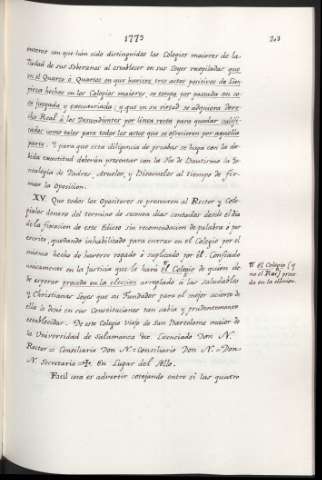 1775
mente con que han sido distinguidos los Colegios mayores de la
Piedad de sus Soberanos al establecer en sus Leyes recopiladas que
en el Quarto ó Quartos en que huviere tres actos positivos de Lim-
pieza hechos en los Colegios mayores, se tenga por pasada en co-
sa juzgada y executoriada; y que en su virtud se adquiera dere-
cho Real á los Descendientes por linea recta para quedar califi-
cados como tales para todos los actos que se ofrecieren por aquella
parte. Y para que esta diligencia de pruebas se haga con la de-
bida exactitud deberán presentar con la Fe de Bautismo la Ge-
nealogia de Padres, Abuelos, y Bisabuelos al tiempo de fir-
mar la Oposicion.
XV. Que todos los Opositores se presenten al Rector y Cole-
giales dentro del termino de sesenta dias contados desde el dia
de la fixacion de este Edicto sin recomendacion de palabra ó por
escrito, quedando inhabilitado para entrar en el Colegio por el
mismo hecho de haverse rogado ó suplicado por él. Confiado
unicamente en la Justicia que le hará el Colegio de quien de-
be esperar proceda en la eleccion arreglado á las saludables
y Christianas Leyes que su Fundador para el mejor acierto de
ella le dexó en sus Constituciones tan sabia y prudentemente
establecidas. De este Colegio Viejo de San Bartolomé mayor de
la Universidad de Salamanca &c. Licenciado Don N.
Rector = Consiliario Don N. = Consiliario Don N. = Don
N. Secretario = En Lugar del Sello.
Facil cosa es advertir cotejando entre si las quatro
el Colegio (y
no el Rey) proce-
da en la eleccion.